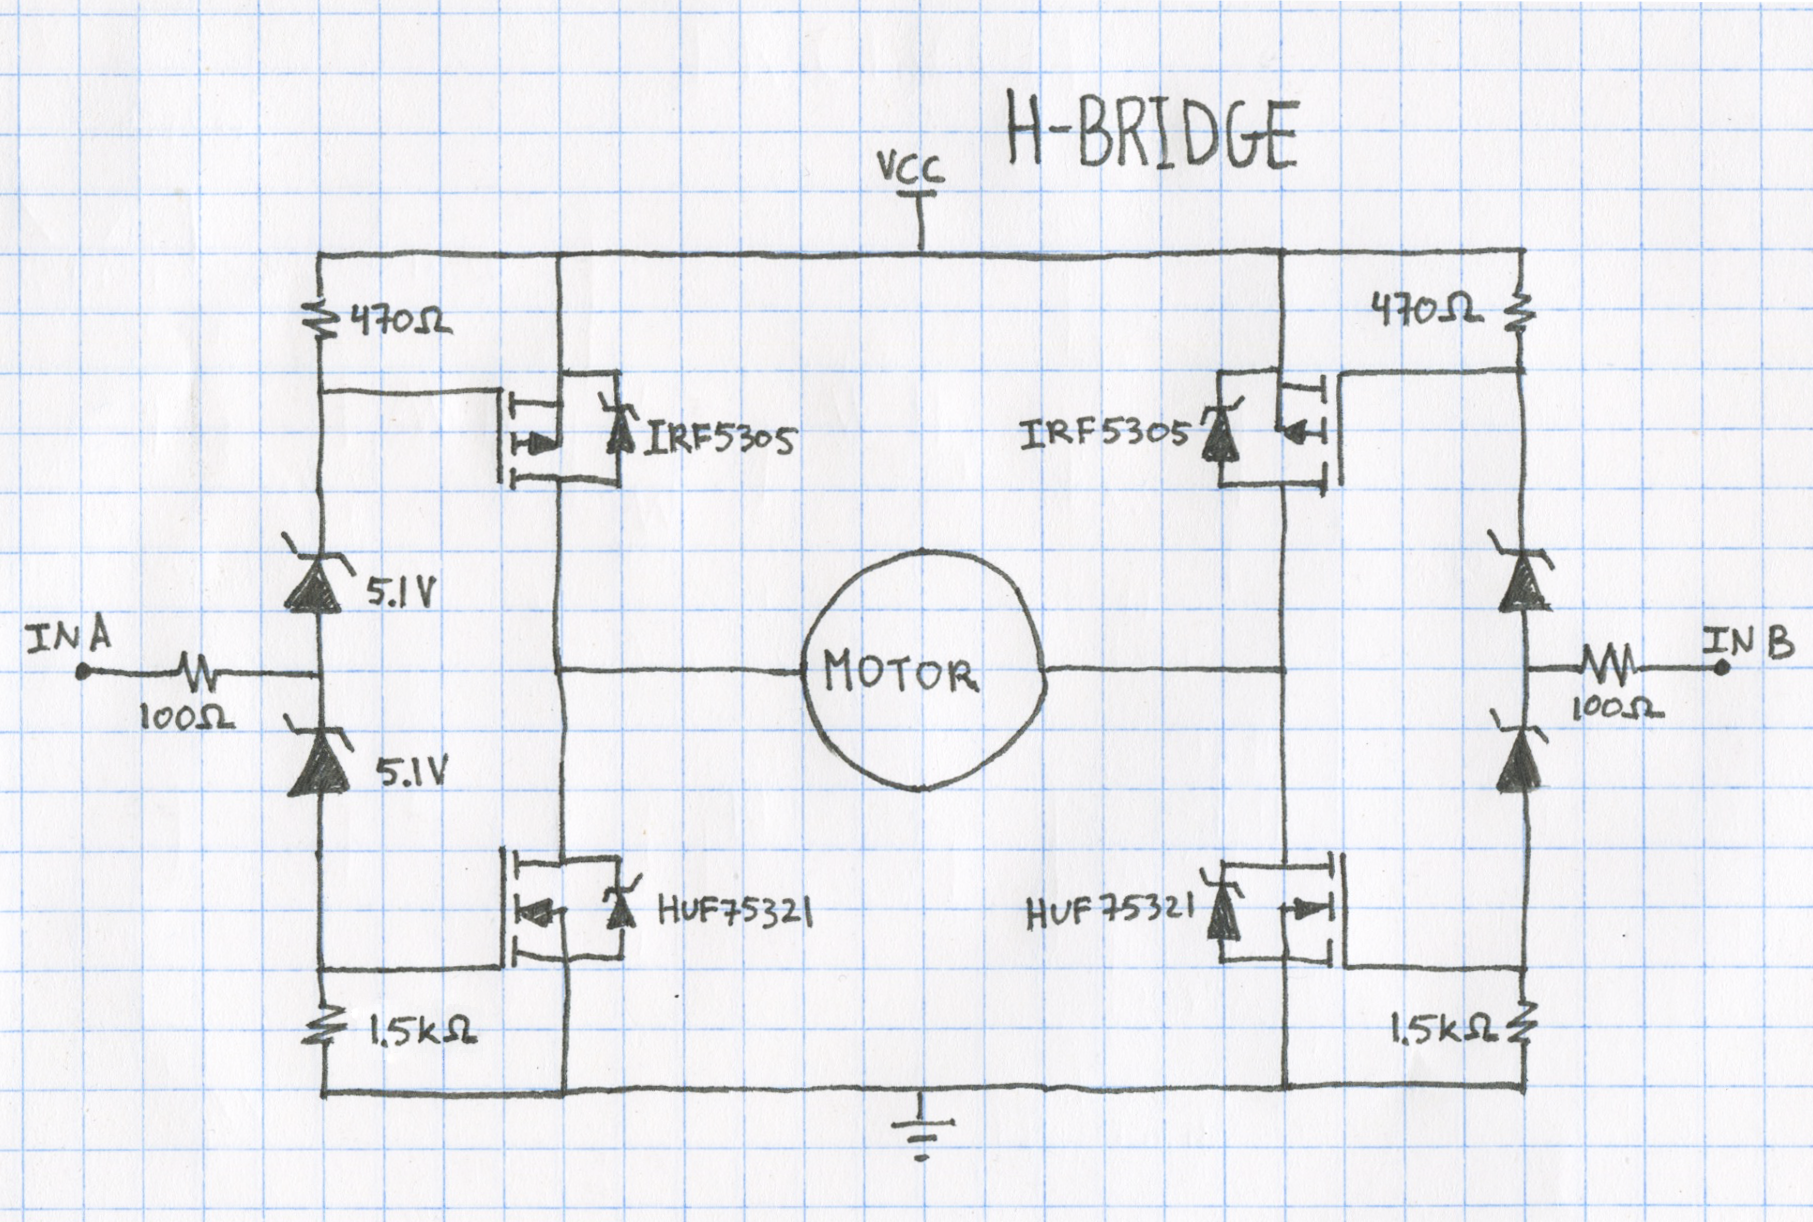 H-BRIDGE
VCC
470Ω
470Ω
IRF5305
IRF5305
5.1V
IN A
IN B
MOTOR
100Ω
100Ω
5.1V
HUF75321
HUF75321
1.5kΩ
1.5kΩ